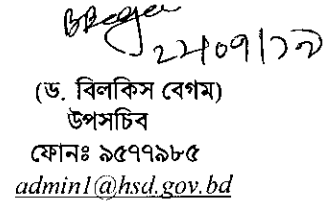 (ড. বিলকিস বেগম)
উপসচিব
ফোনঃ ৯৫৭৭৯৮৫
admin1@hsd.gov.bd